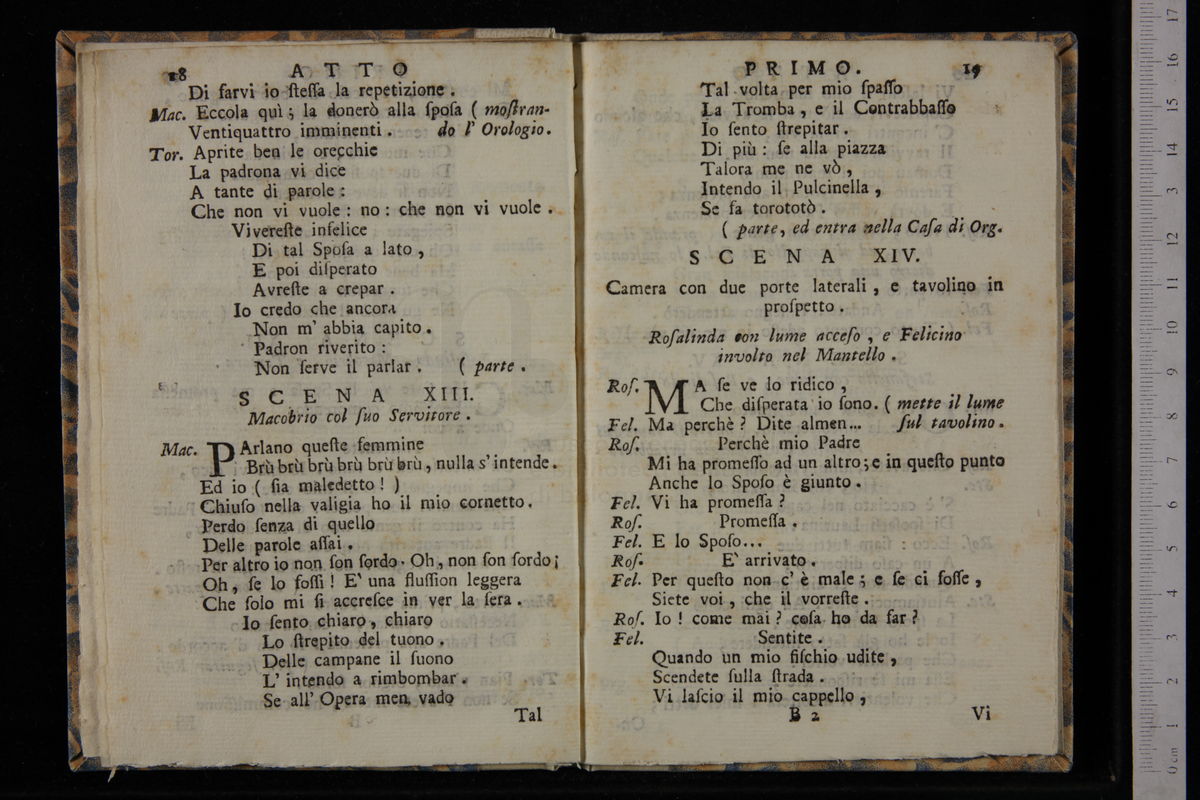 18 ATTO
Di farvi io ſteſſa la repetizione.
Mac. Eccola quì; la donerò alla ſpoſa ( moſtran-
Ventiquattro imminenti. do l' Orologio.
Tor. Aprite ben le orecchie
La padrona vi dice
A tante di parole:
Che non vi vuole: no: che non vi vuole.
Vivereſte infelice
Di tal Spoſa a lato,
E poi diſperato
Avreſte a crepar.
Io credo che ancora
Non m' abbia capito.
Padron riverito:
Non ſerve il parlar. ( parte.
SCENA XIII.
Macobrio col ſuo Servitore.
Mac. PArlano queſte femmine
Brù brù brù brù brù brù, nulla s' intende.
Ed io ( ſia maledetto! )
Chiuſo nella valigia ho il mio cornetto.
Perdo ſenza di quello
Delle parole aſſai.
Per altro io non ſon ſordo. Oh, non ſon ſordo;
Oh, ſe lo foſſi! E' una fluſſion leggera
Che ſolo mi ſi accreſce in ver la ſera.
Io ſento chiaro, chiaro
Lo ſtrepito del tuono.
Delle campane il ſuono
L' intendo a rimbombar.
Se all' Opera men vado
Tal
PRIMO. 19
Tal volta per mio ſpaſſo
La Tromba, e il Contrabbaſſo
Io ſento ſtrepitar.
Di più: ſe alla piazza
Talora me ne vò,
Intendo il Pulcinella,
Se fa torototò.
( parte, ed entra nella Caſa di Org.
SCENA XIV.
Camera con due porte laterali, e tavolino in
proſpetto.
Roſalinda con lume acceſo, e Felicino
involto nel Mantello.
Roſ. MA ſe ve lo ridico,
Che diſperata io ſono. ( mette il lume
Fel. Ma perchè? Dite almen... ſul tavolino.
Roſ. Perchè mio Padre
Mi ha promeſſo ad un altro; e in queſto punto
Anche lo Spoſo è giunto.
Fel. Vi ha promeſſa?
Roſ. Promeſſa.
Fel. E lo Spoſo...
Roſ. E' arrivato.
Fel. Per queſto non c' è male; e ſe ci foſſe,
Siete voi, che il vorreſte.
Roſ. Io! come mai? coſa ho da far?
Fel. Sentite.
Quando un mio fiſchio udite,
Scendete ſulla ſtrada.
Vi laſcio il mio cappello,
B 2 Vi
0 cm 1 2 3 4 5 6 7 8 9 10 11 12 13 14 15 16 17